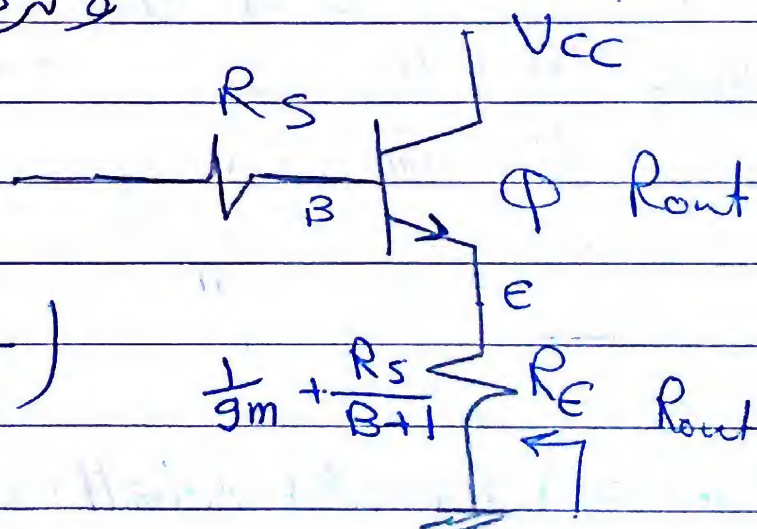 VCC
RS
B
Φ Rout
E
1/gm + RS/B+1
RE Rout